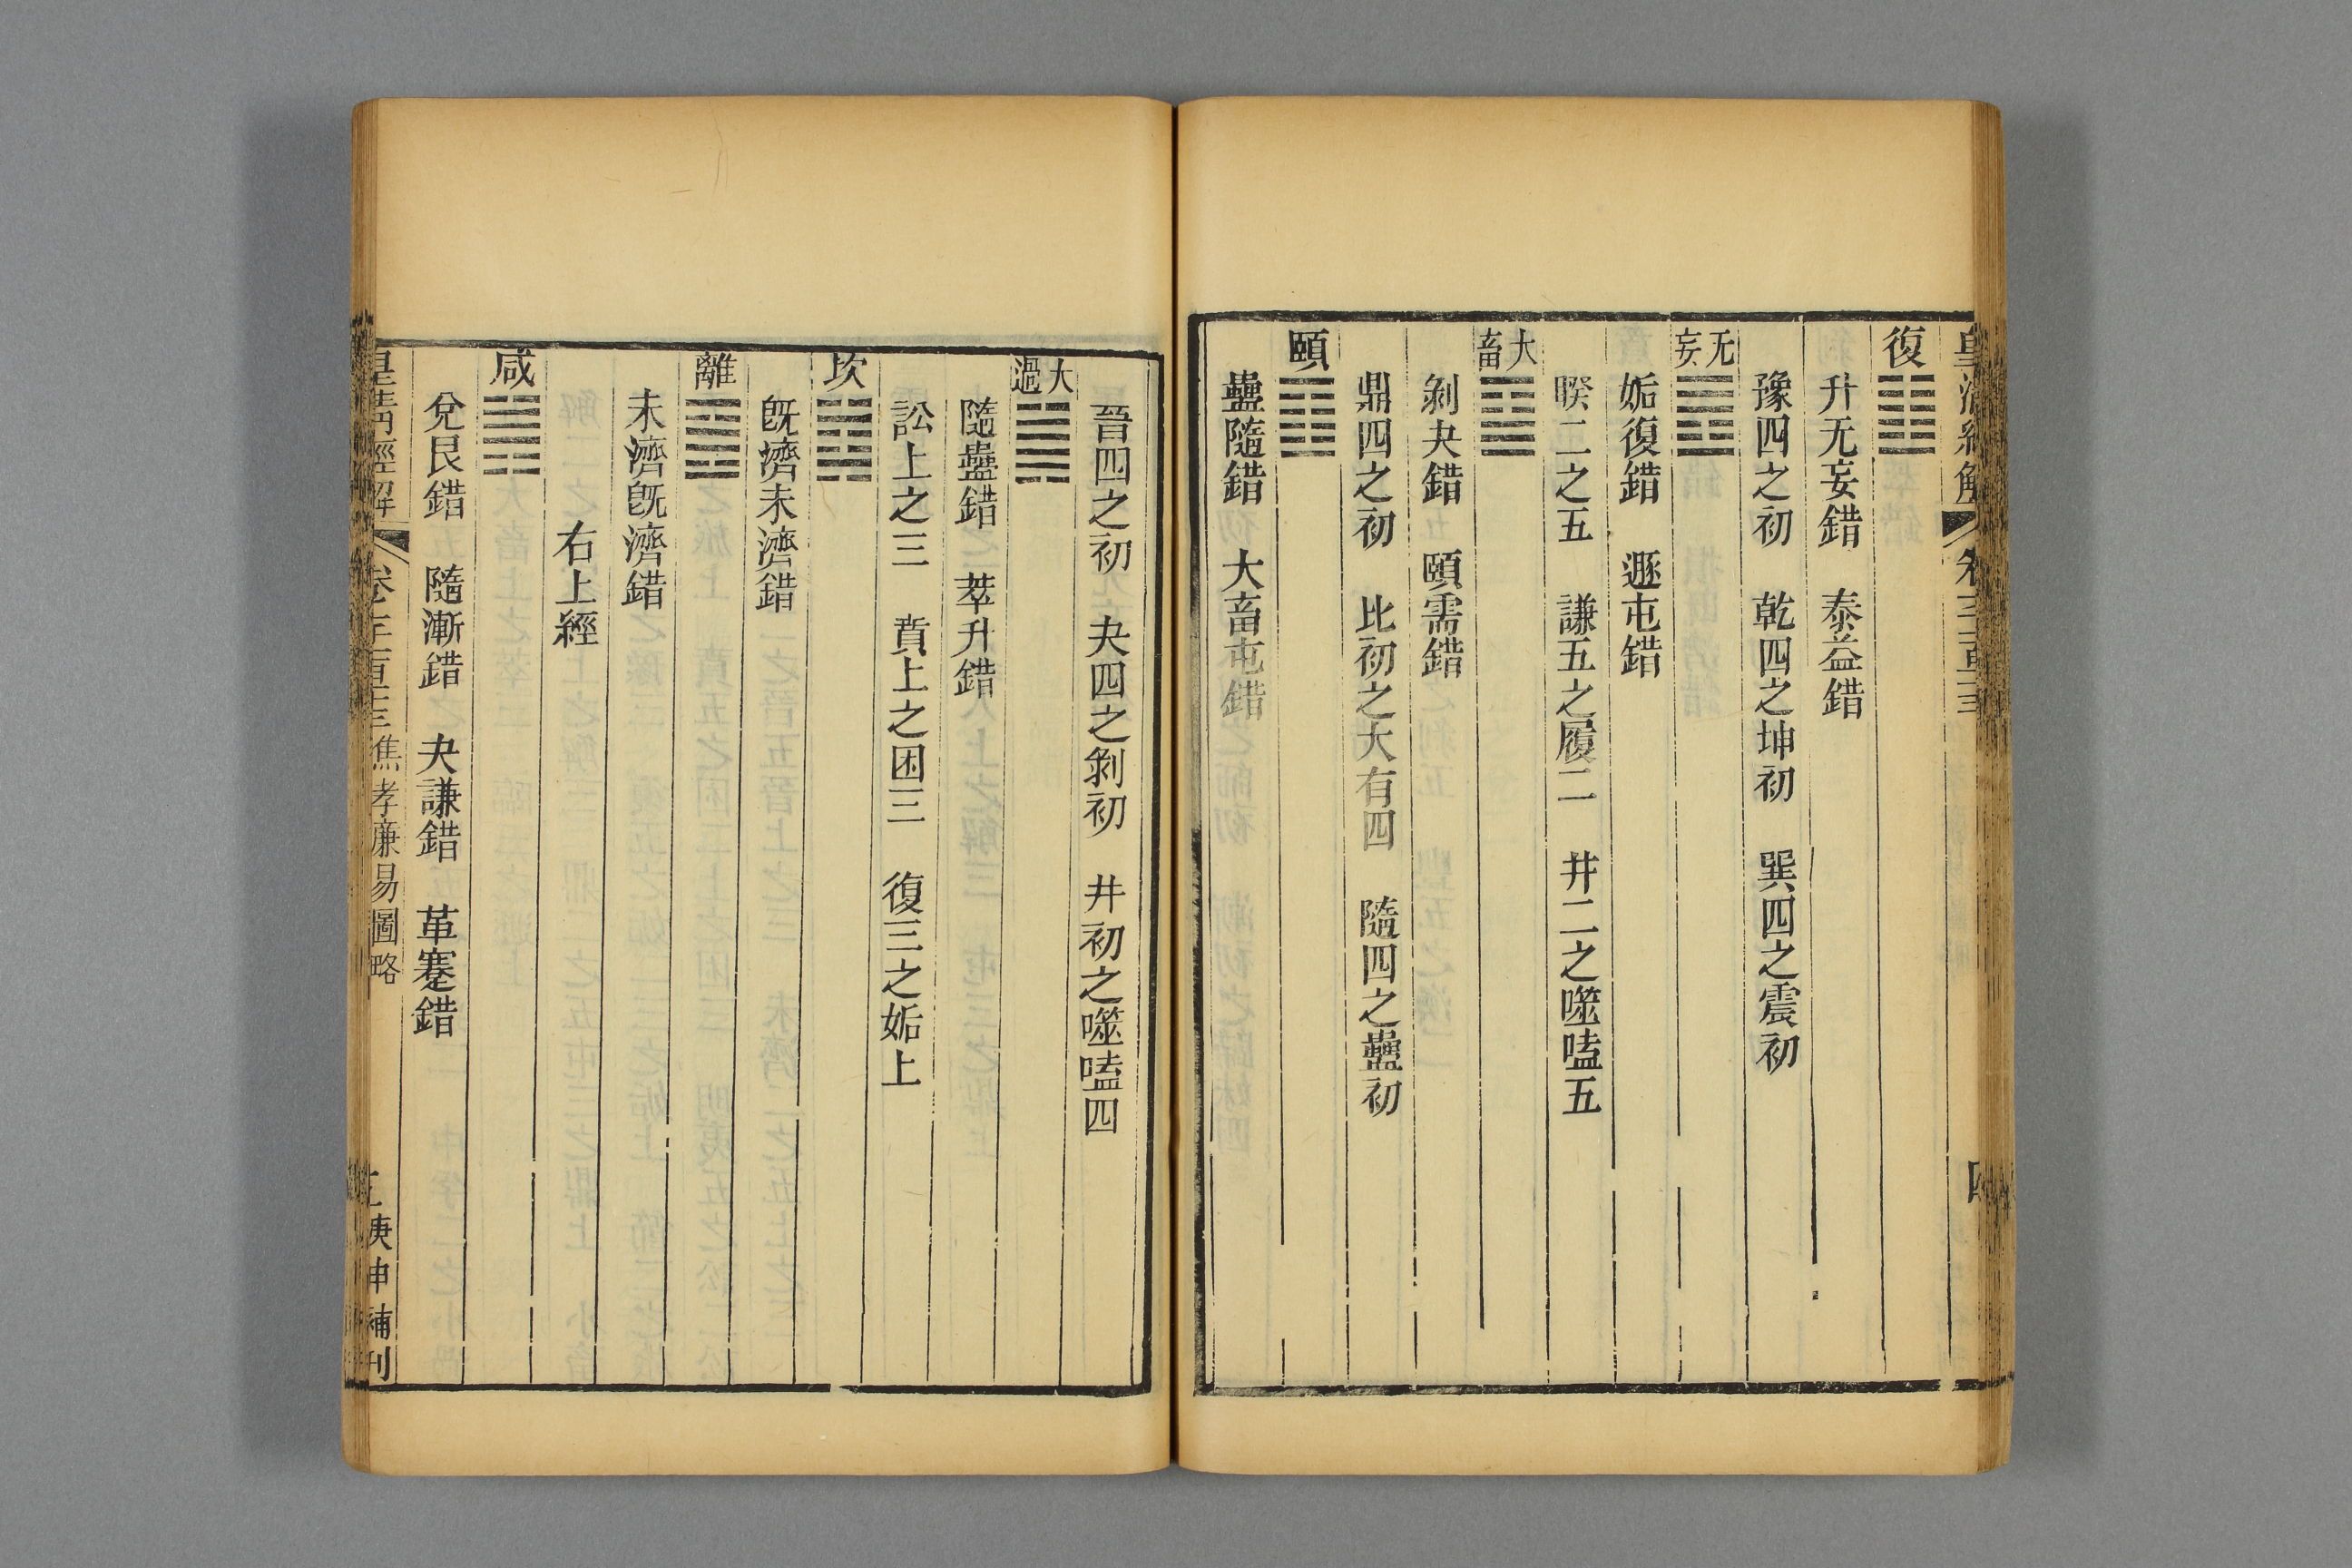 皇清經解 卷 四
復
升无妄錯　泰益錯
豫四之初　乾四之坤初　巽四之震初
无妄
姤復錯　遯屯錯
睽二之五　謙五之履二　井二之噬嗑五
大畜
剝夬錯　頤需錯
鼎四之初　比初之大有四　隨四之蠱初
頤
蠱隨錯　大畜屯錯
晉四之初　夬四之剝初　井初之噬嗑四
大過
隨蠱錯　萃升錯
訟上之三　賁上之困三　復三之姤上
坎
旣濟未濟錯
離
未濟旣濟錯
右上經
咸
兌艮錯　隨漸錯　夬謙錯　革蹇錯
皇清經解 卷 焦孝廉易圖略 庚申補刊